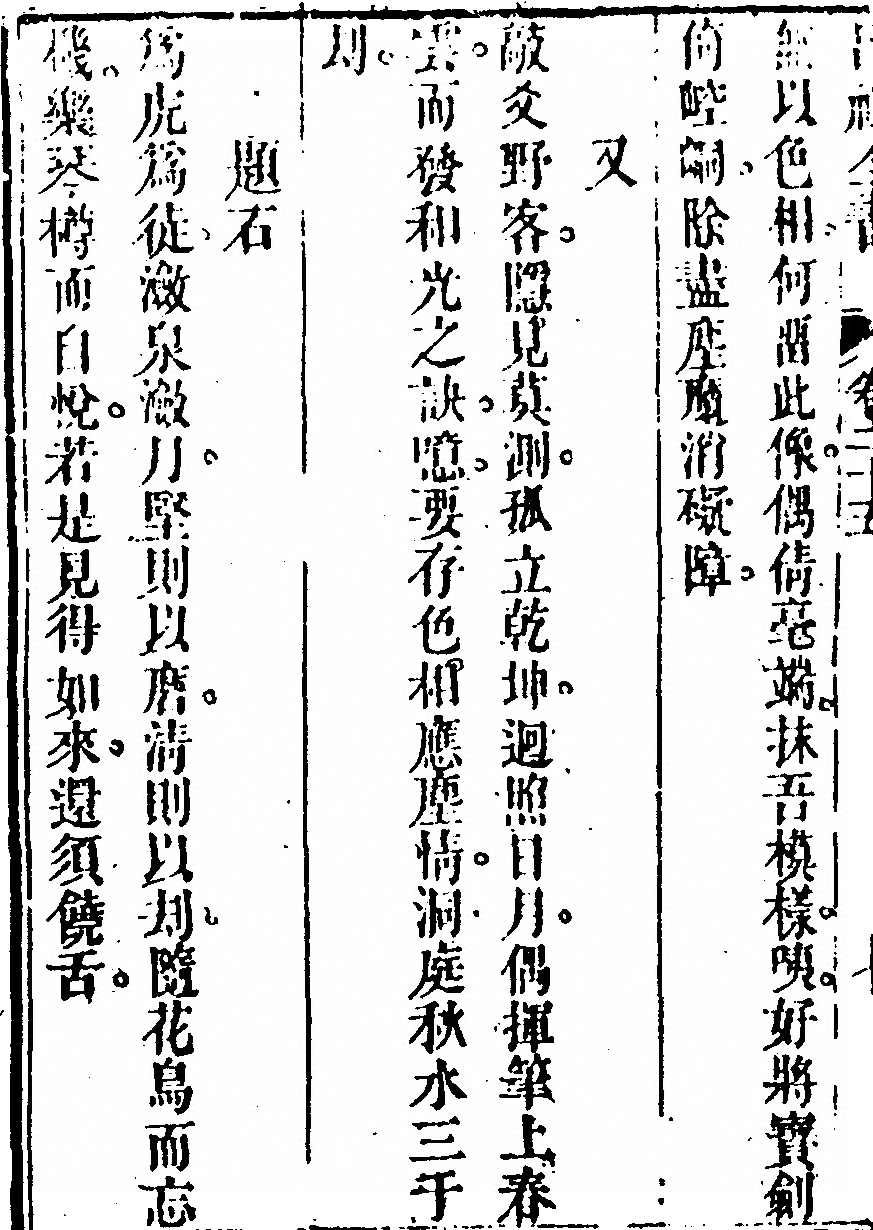 呂祖全書 卷二十五
無以色相。何留此像。偶倩毫端。抹吾模樣。咦。好將寶劍
倚崆峒。除盡塵魔消礙障。
又
敲爻野客。隱見莫測。孤立乾坤。迴照日月。偶揮筆上春
雲。而發和光之訣。噫。要存色相應塵情。洞庭秋水三千
刦。
題石
為虎為徒。漱泉漱月。堅則以磨。清則以刦。隨花鳥而忘
機。樂琴樽而自悅。若是見得如來。還須饒舌。